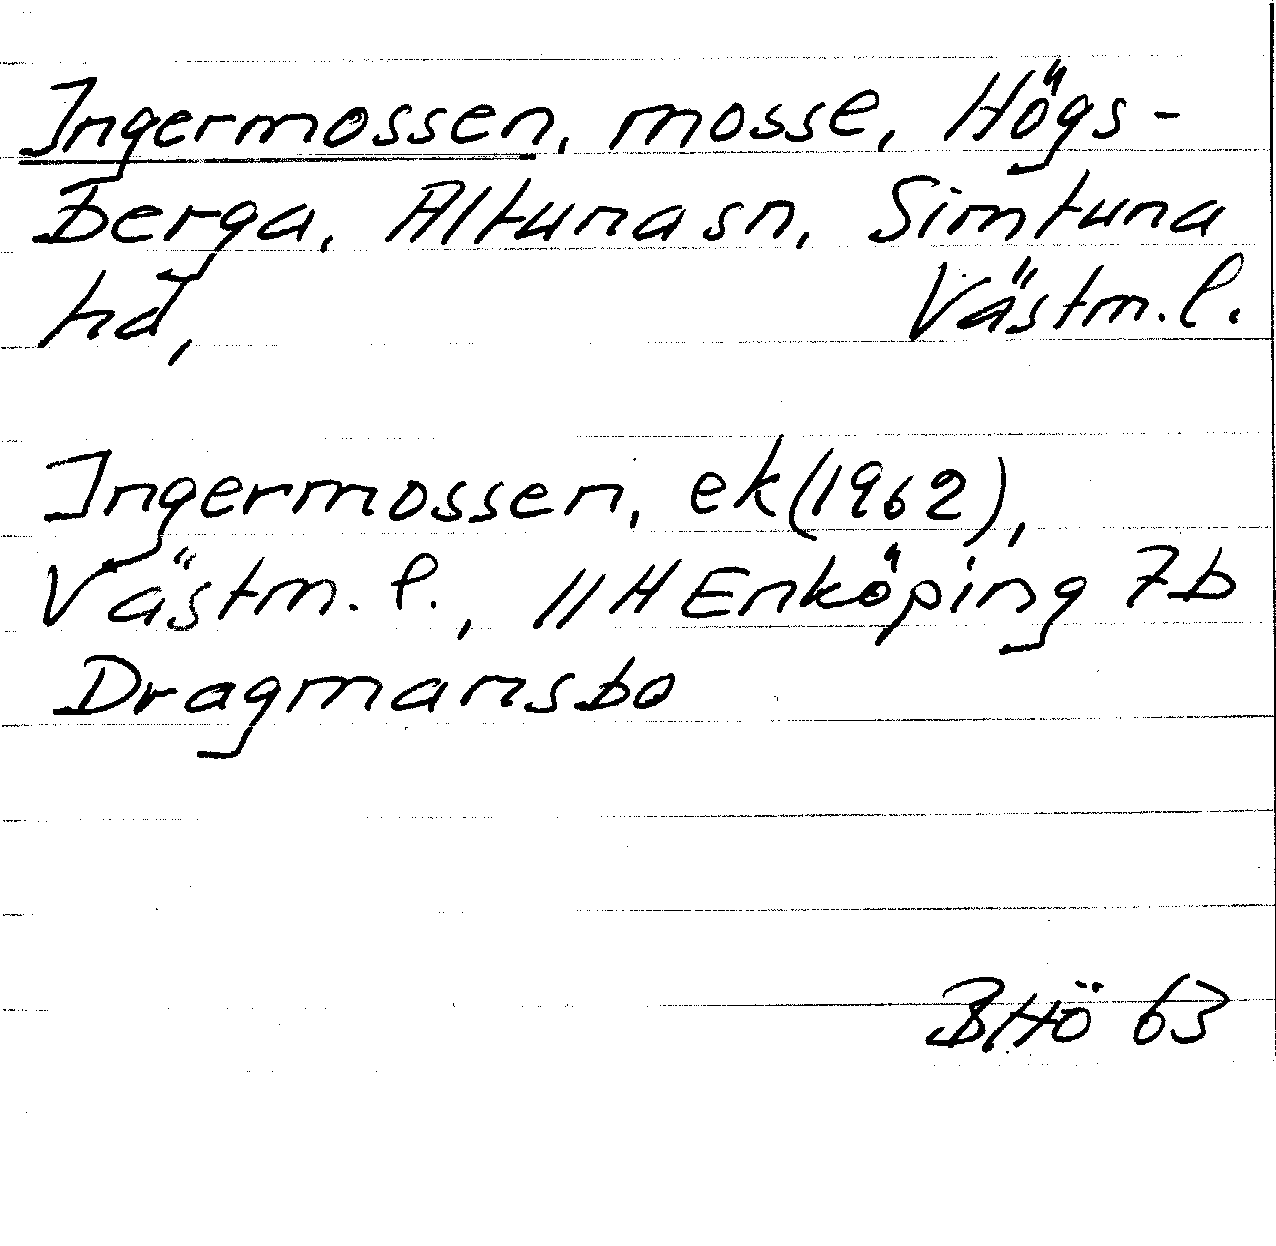 Ingermossen, mosse, Högs-
berga, Altuna sn, Simtuna
hd, Västm. l.
Ingermossen, ek (1962),
Västm. l., 11 H Enköping 7b
Dragmansbo
BHö 63